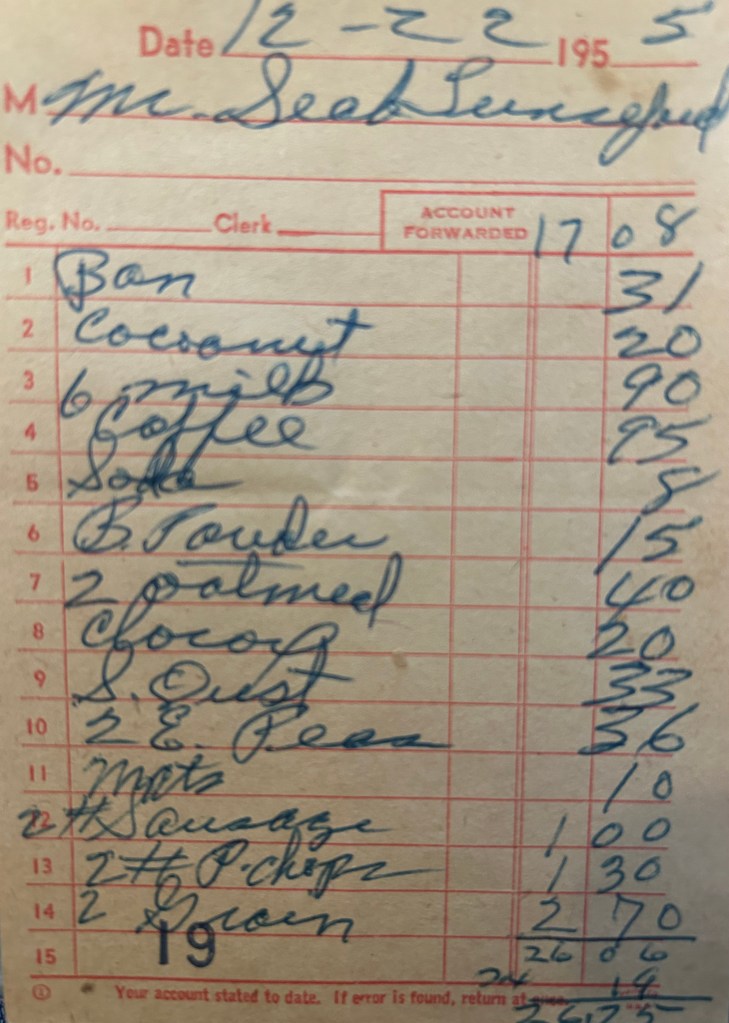 Date 12-22 1955
M Mr. Seab Lunsford
No.
Reg. No. Clerk ACCOUNT FORWARDED 17 08
1 Ban 31
2 Cocoanut 20
3 6 milk 90
4 Coffee 95
5 Soda 8
6 B. Powder 15
7 2 oatmeal 40
8 20
9 S. Dust 33
10 2 E. Peas 36
11 Mats 10
12 2# Sausage 1 00
13 2# P. chops 1 30
14 2 2 70
19
15 26 06
19
Your account stated to date. If error is found, return at once.
26.25